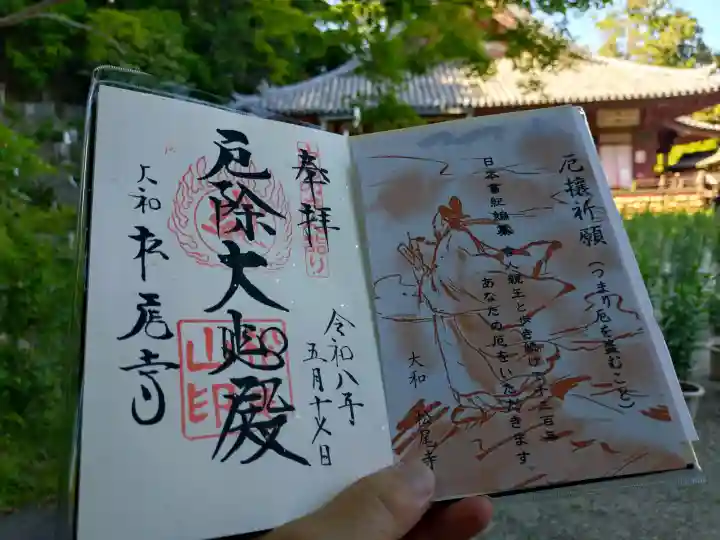 奉拝
厄除大悲殿
大和 松尾寺
令和八年
五月十七日
厄攘祈願(つまり厄を盗むこと)
日本書紀編纂 舎人親王と歩き続け 一千三百年
あなたの厄をいただきます。
大和 松尾寺